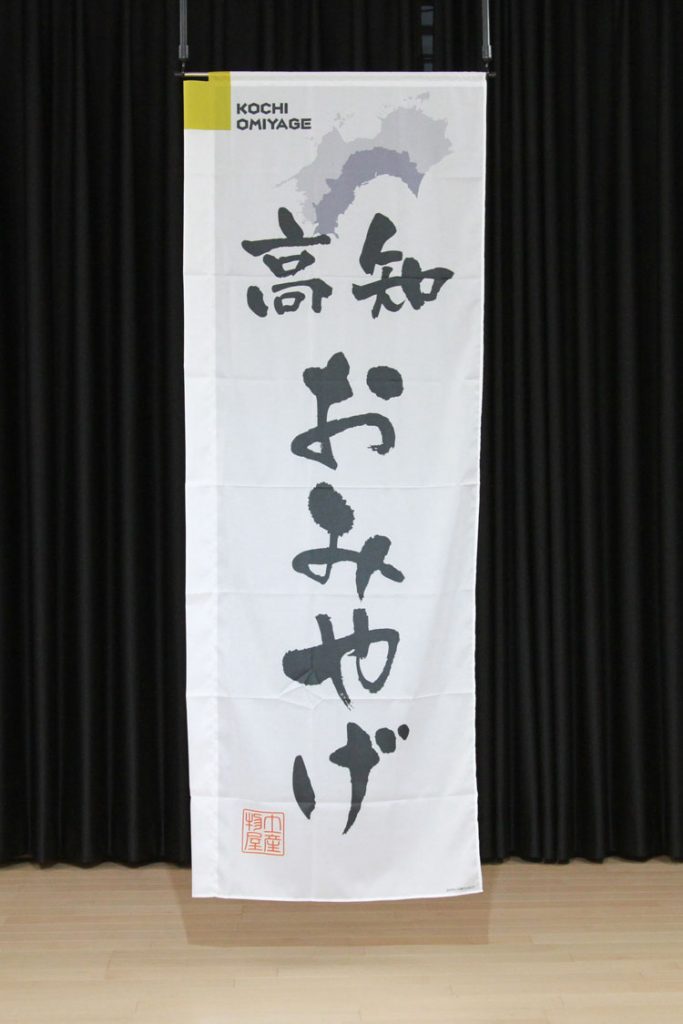 KOCHI
OMIYAGE
高知
おみやげ
土産
物屋